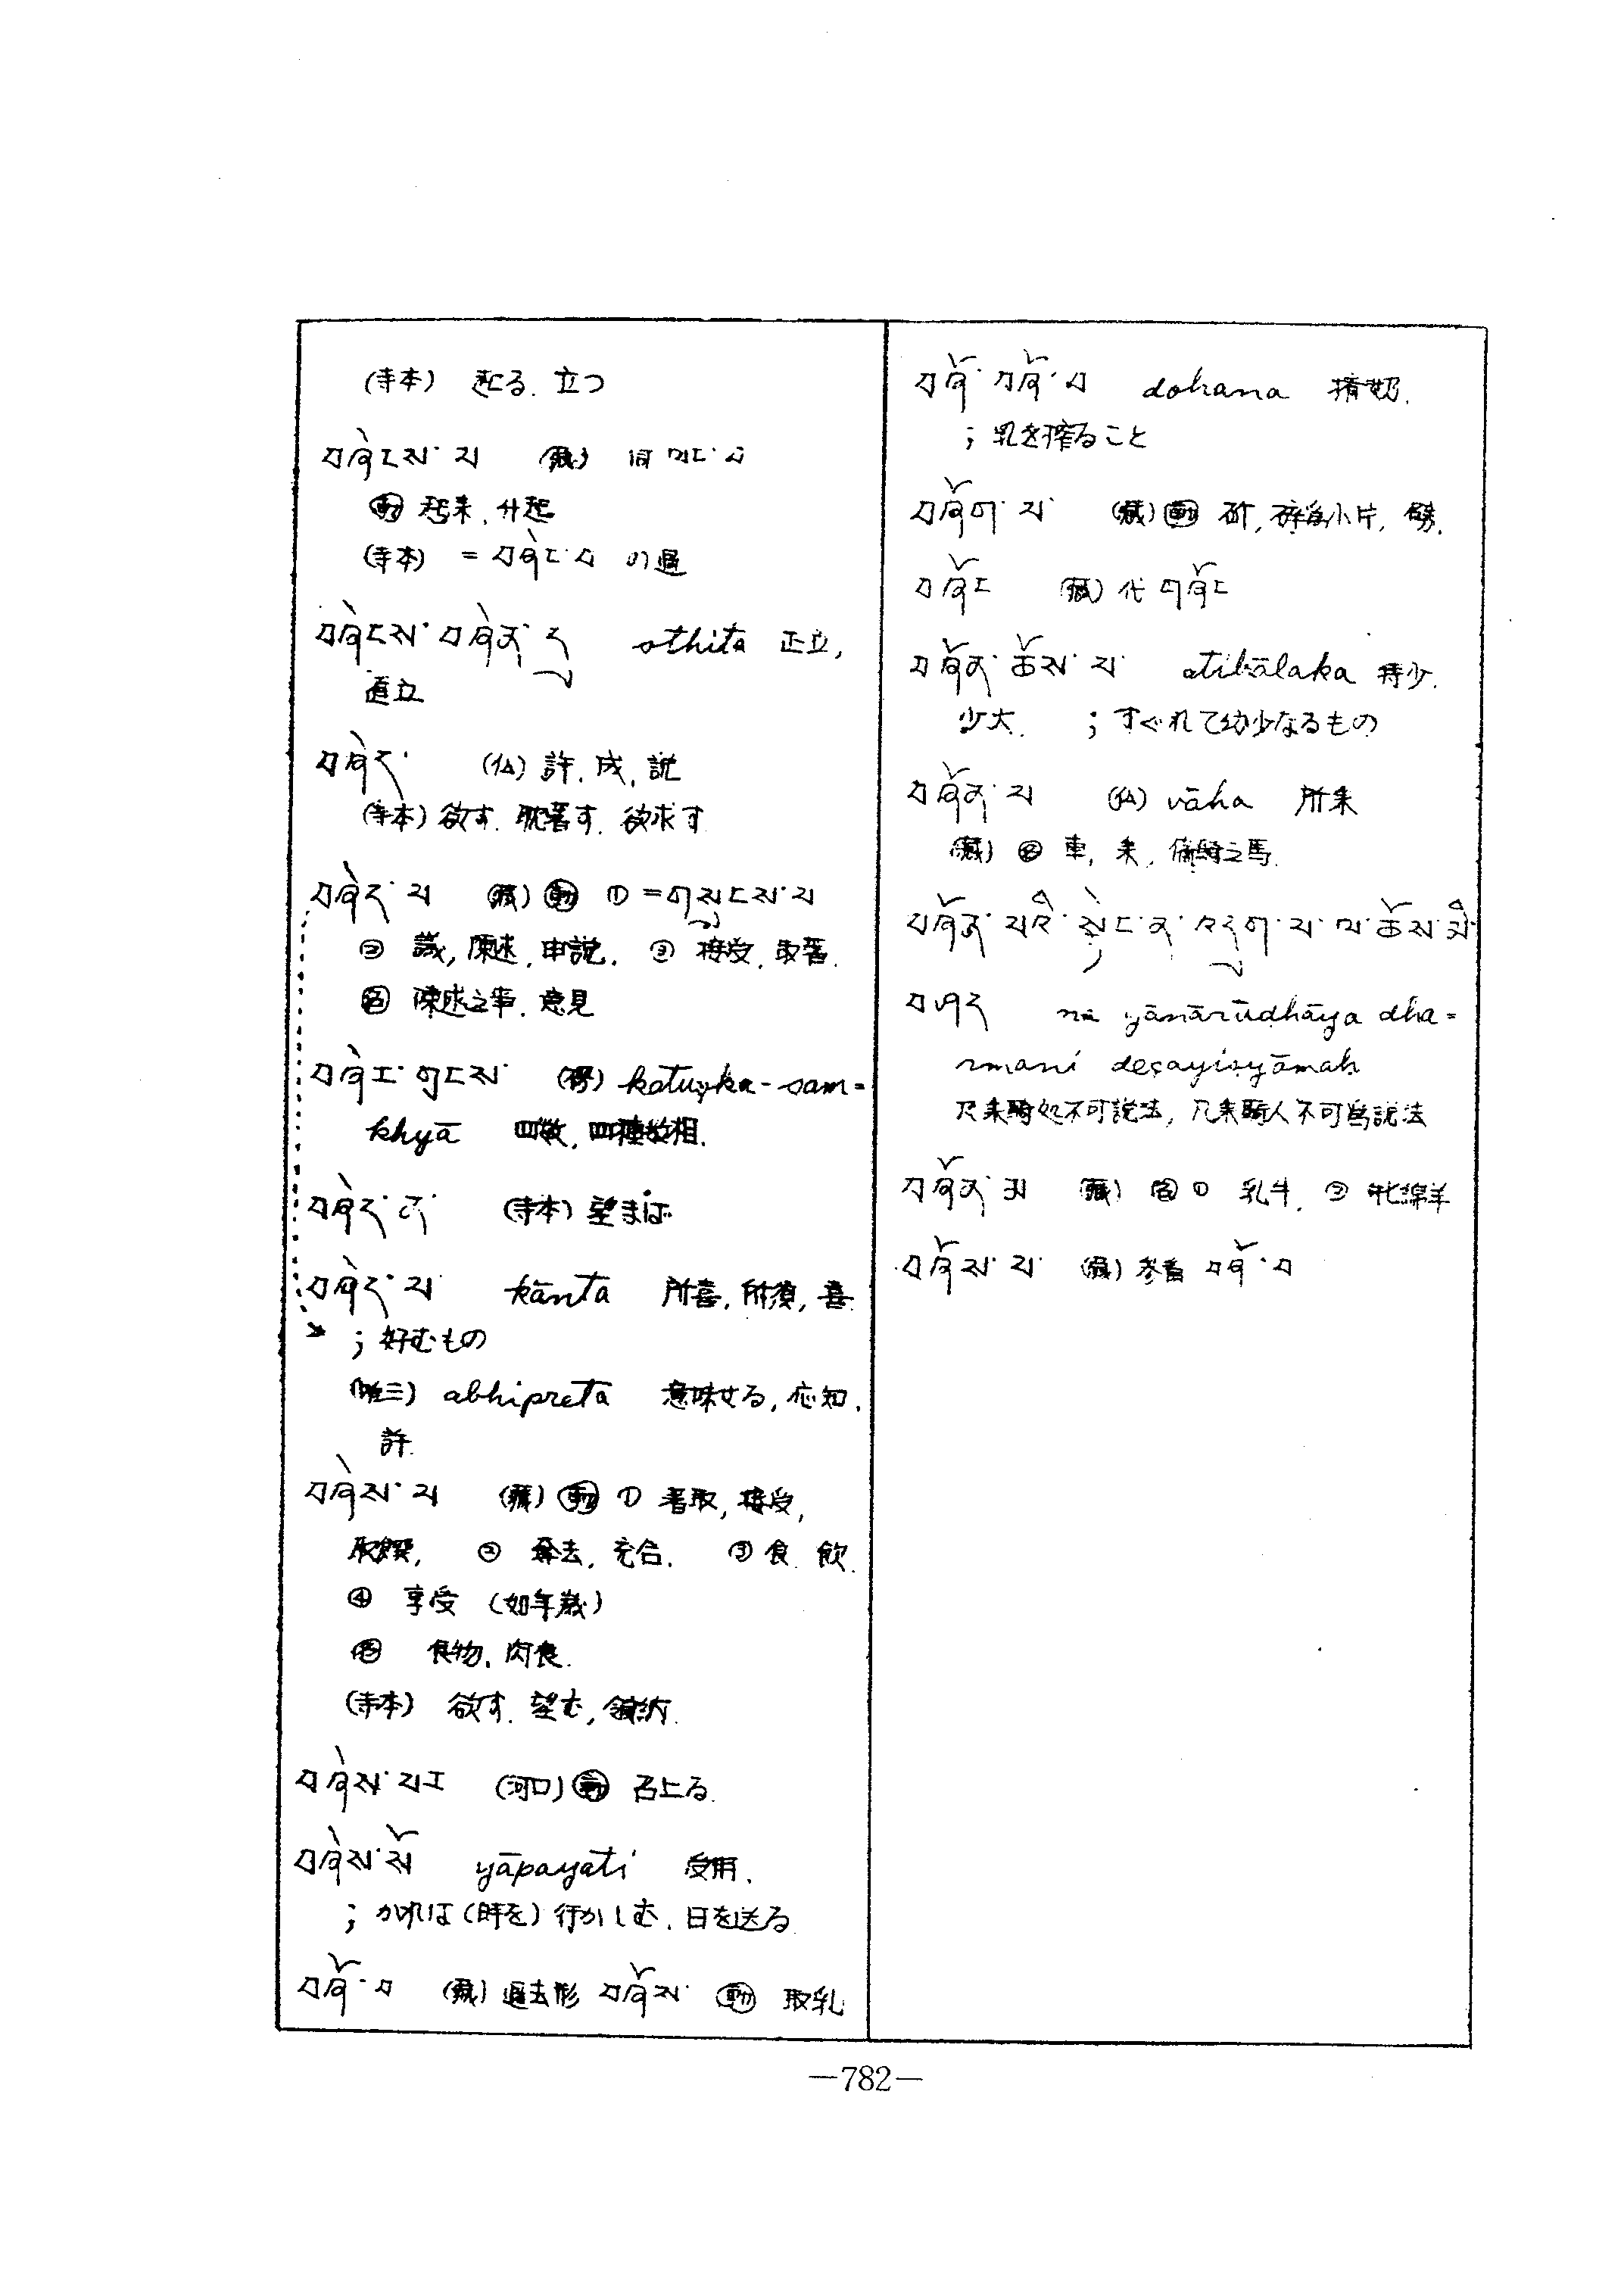 (寺本) 起る. 立つ
བཞེངས་པ (蔵) 同 བཞེང་བ
動 起来, 升起
(寺本) = བཞེང་བ の過
བཞེངས་བཞེན་ད sthita 正立,
直立
བཞེད་ (仏) 許, 成, 説
(寺本) 欲す. 耽著す. 欲求す
བཞེད་པ (蔵) 動 ① = གསུངས་པ
② 議, 陳述, 申説. ③ 接受, 取著.
名 陳述之事, 意見
བཞེར་གྲངས་ kotuṣka-sam=
khyā 四数, 四種数相.
བཞེད་ན་ (寺本) 望まば
བཞེད་པ kānta 所喜, 所須, 喜.
; 好むもの
(唯三) abhipreta 意味せる, 応知,
許.
བཞེས་པ (蔵) 動 ① 著取, 接受,
② 奪去, ③ 食. 飲.
④ 享受 (如年歳)
名 食物, 肉食.
(寺本) 欲す. 望む, 領納.
བཞེས་པར (河口) 動 召上る.
བཞེས་སོ yāpayati 受用.
; かれは (時を) 行かしむ, 日を送る.
བཞོ་བ (蔵) 過去形 བཞོས་ 動 取乳
བཞོ་བཞོ་བ dohana 搾奶.
; 乳を搾ること
བཞོག་པ (蔵) 動 斫, 碎為小片, 劈.
བཞོང (蔵) 代 གཞོང
བཞོན་ཆོས་པ atibālaka 特少.
少大. ; すぐれて幼少なるもの
བཞོན་པ (仏) vāha 所乗
(蔵) 名 車, 乗, 備騎之馬.
བཞོན་པའི་སྟེང་ན་འདུག་པ་ལ་ཆོས་མི་
བཤད na yānārūdhāya dha=
rmani deçayiṣyāmah
凡乗騎処不可説法, 凡乗騎人不可為説法
བཞོན་མ (蔵) 名 ① 乳牛. ② 牝綿羊
བཞོས་པ (蔵) 参看 བཞོ་བ
—782—